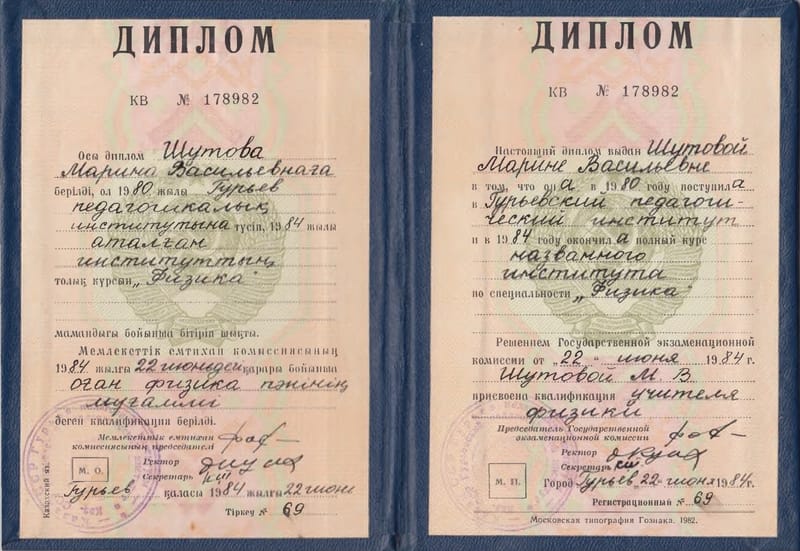 ДИПЛОМ
КВ № 178982
Осы диплом Шутова
Марина Васильевнаға
берілді, ол 1980 жылы Гурьев
педагогикалық
институтына түсіп, 1984 жылы
аталған
институттың
толық курсын „Физика“
мамандығы бойынша бітіріп шықты.
Мемлекеттік емтихан комиссиясының
1984 жылғы 22 июньдегі қарары бойынша
оған физика пәнінің
мұғалімі
деген квалификация берілді.
Мемлекеттік емтихан
комиссиясының председателі
Ректор
Секретарь
М. О.
Гурьев қаласы 1984 жылғы 22 июнь
Тіркеу № 69
Казахский яз.
ДИПЛОМ
КВ № 178982
Настоящий диплом выдан Шутовой
Марине Васильевне
в том, что она в 1980 году поступила
в Гурьевский педагоги-
ческий институт
и в 1984 году окончила полный курс
названного
института
по специальности „Физика“
Решением Государственной экзаменационной
комиссии от „22“ июня 1984 г.
Шутовой М. В
присвоена квалификация учителя
физики
Председатель Государственной
экзаменационной комиссии
Ректор
Секретарь
М. П.
Город Гурьев 22 июня 1984 г.
Регистрационный № 69
Московская типография Гознака. 1982.